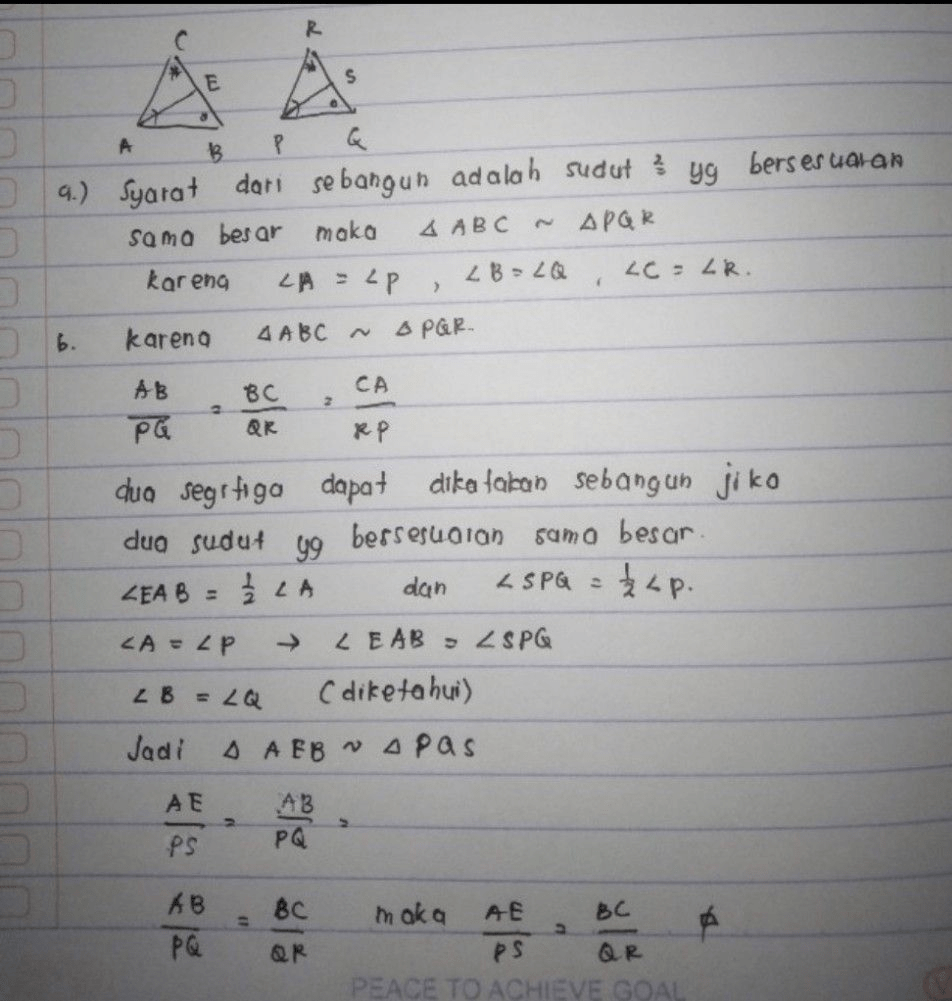 C R
E S
A B P Q
a.) Syarat dari sebangun adalah sudut ² yg bersesuaian
sama besar maka Δ ABC ~ Δ PQR
karena ∠A = ∠P , ∠B = ∠Q , ∠C = ∠R.
b. karena Δ ABC ~ Δ PQR.
AB/PQ = BC/QR = CA/RP
dua segitiga dapat dikatakan sebangun jika
dua sudut yg bersesuaian sama besar.
∠EAB = 1/2 ∠A dan ∠SPQ = 1/2 ∠P.
∠A = ∠P → ∠EAB = ∠SPQ
∠B = ∠Q (diketahui)
Jadi Δ AEB ~ Δ PQS
AE/PS = AB/PQ =
AB/PQ = BC/QR maka AE/PS = BC/QR
PEACE TO ACHIEVE GOAL